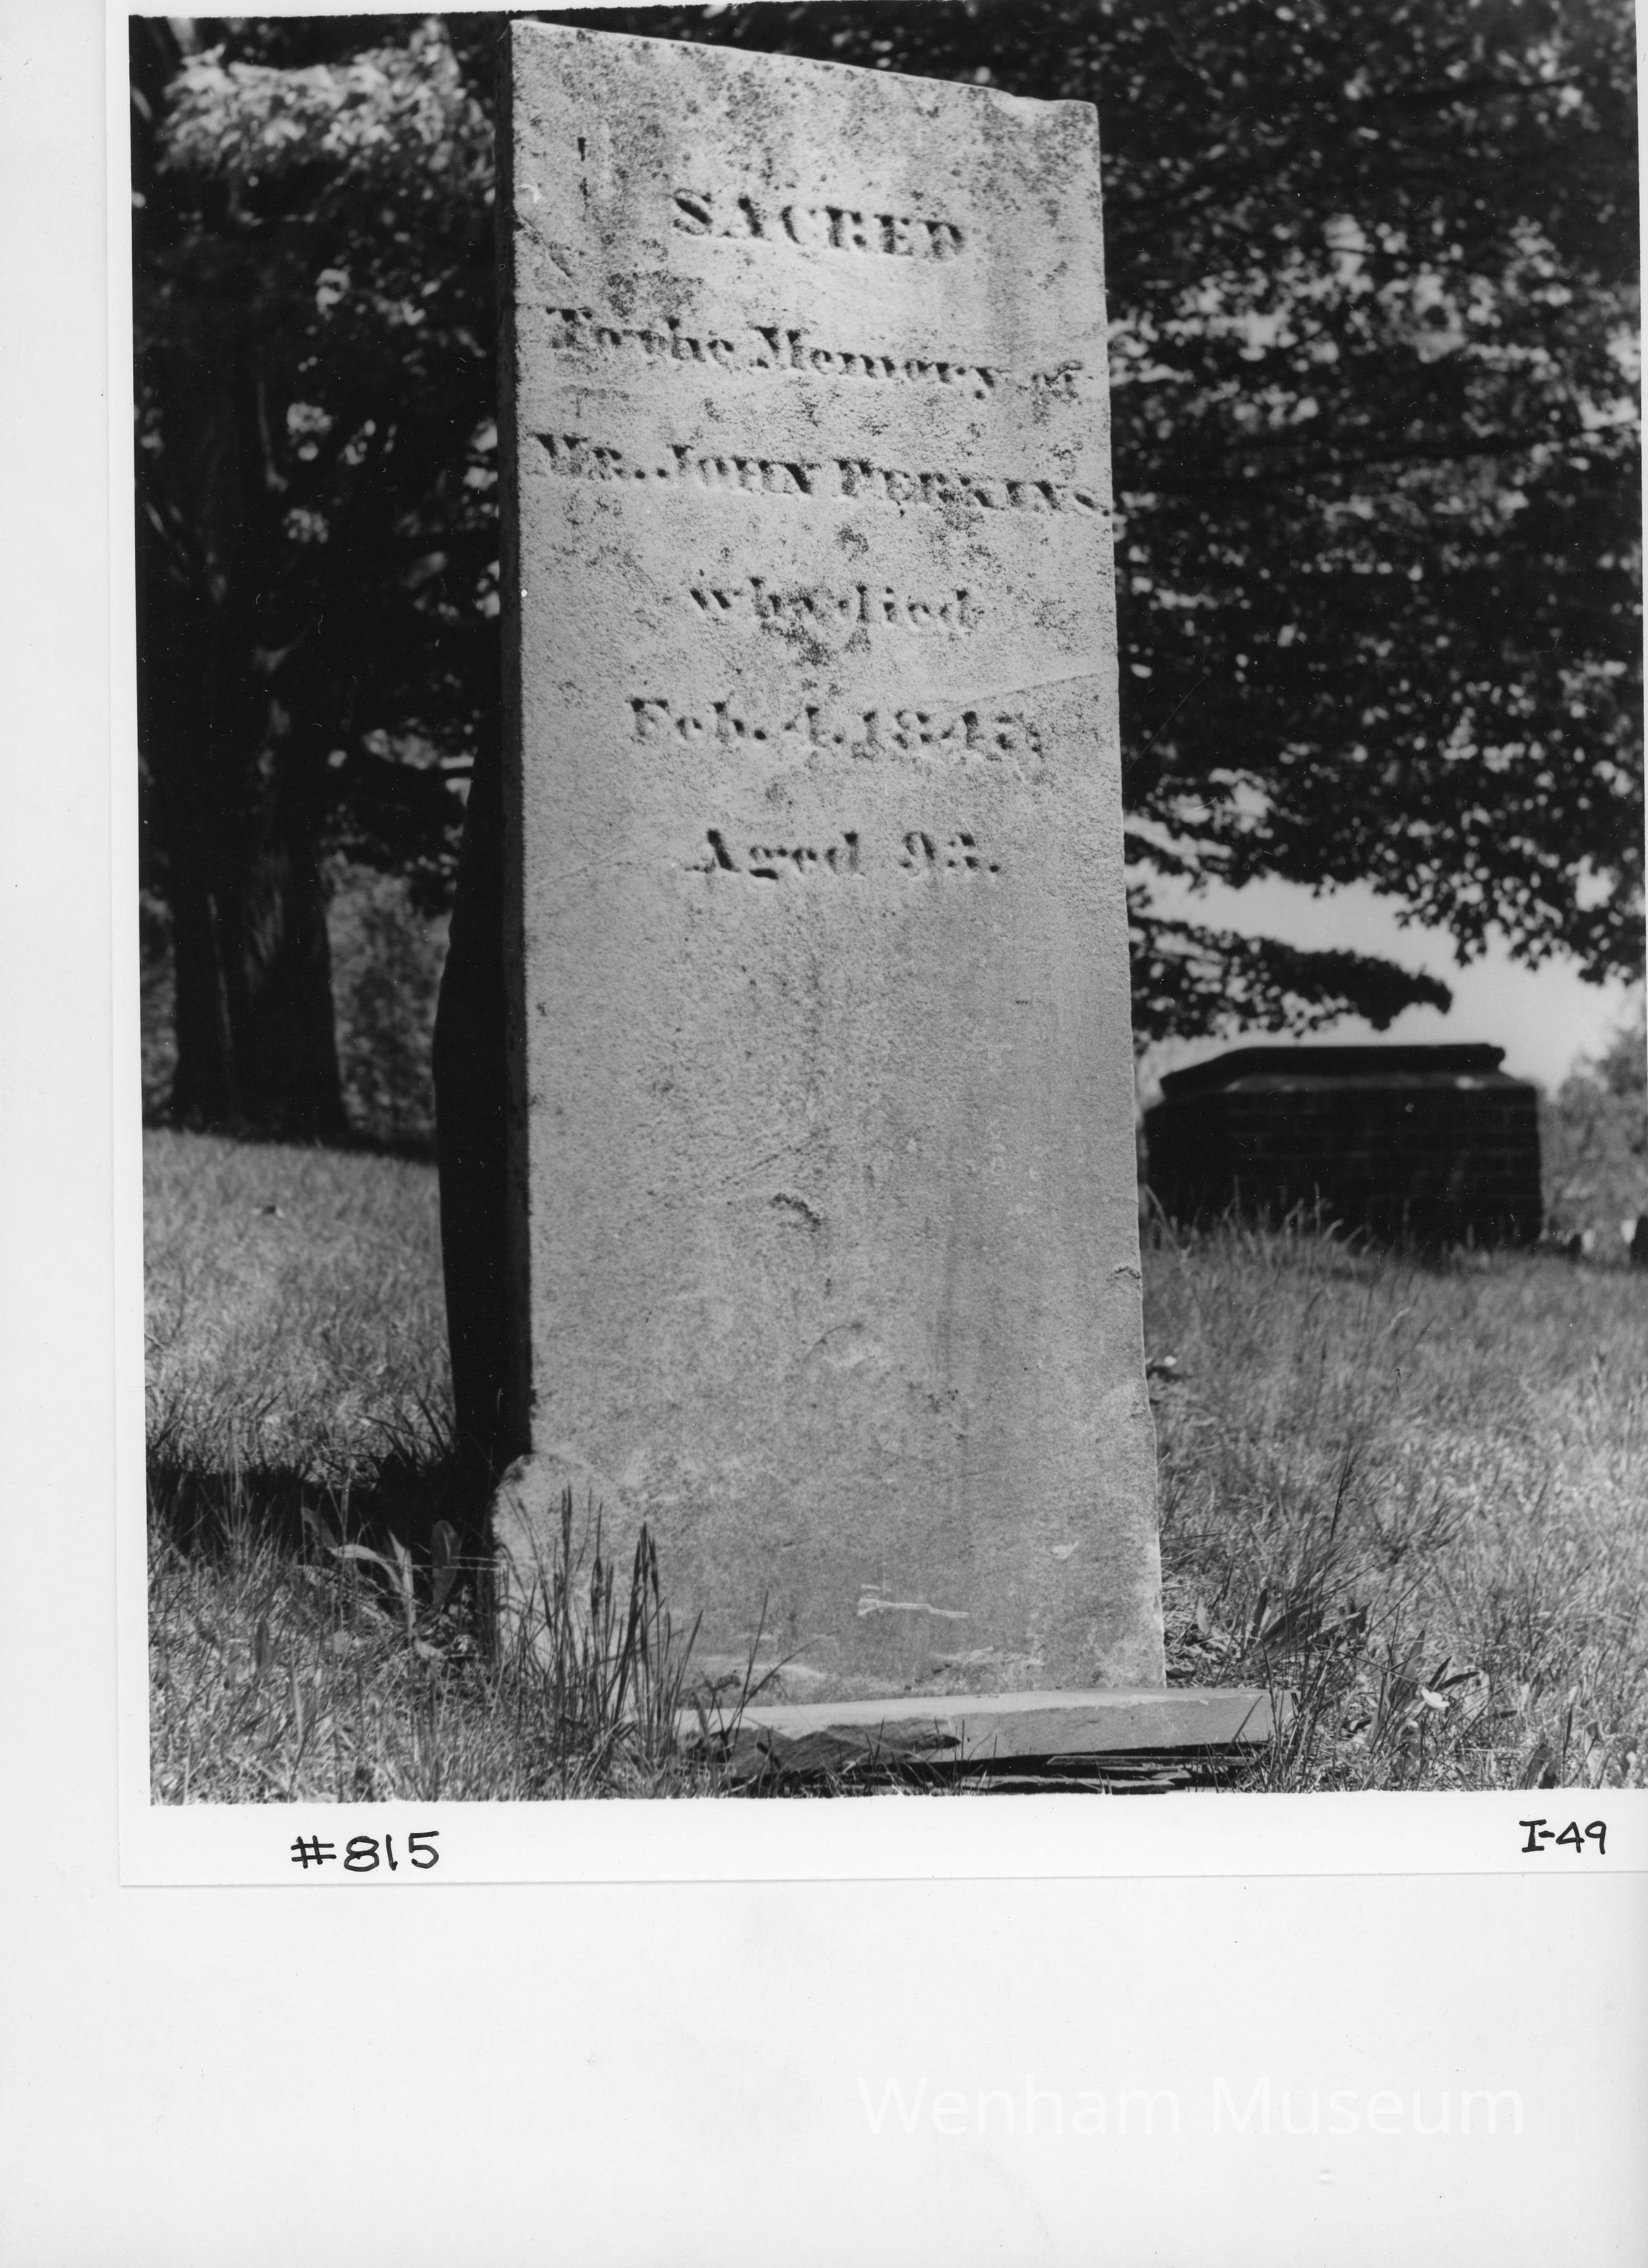 SACRED
To the Memory of
MR. JOHN PERKINS.
who died
Feb. 4. 1845,
Aged 93.
#815
I-49
Wenham Museum